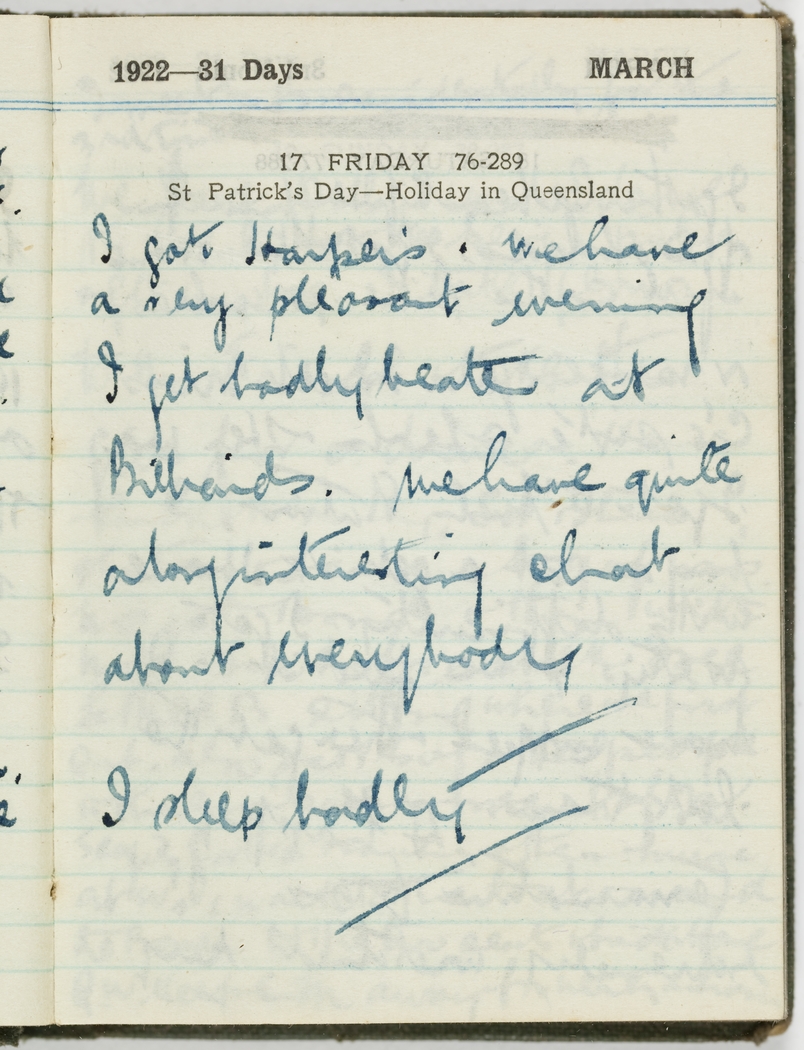 1922—31 Days MARCH
17 FRIDAY 76-289
St Patrick's Day—Holiday in Queensland
I got Harper's. We have
a very pleasant evening
I get badly beaten at
Billiards. We have quite
a long interesting chat
about everybody
I sleep badly